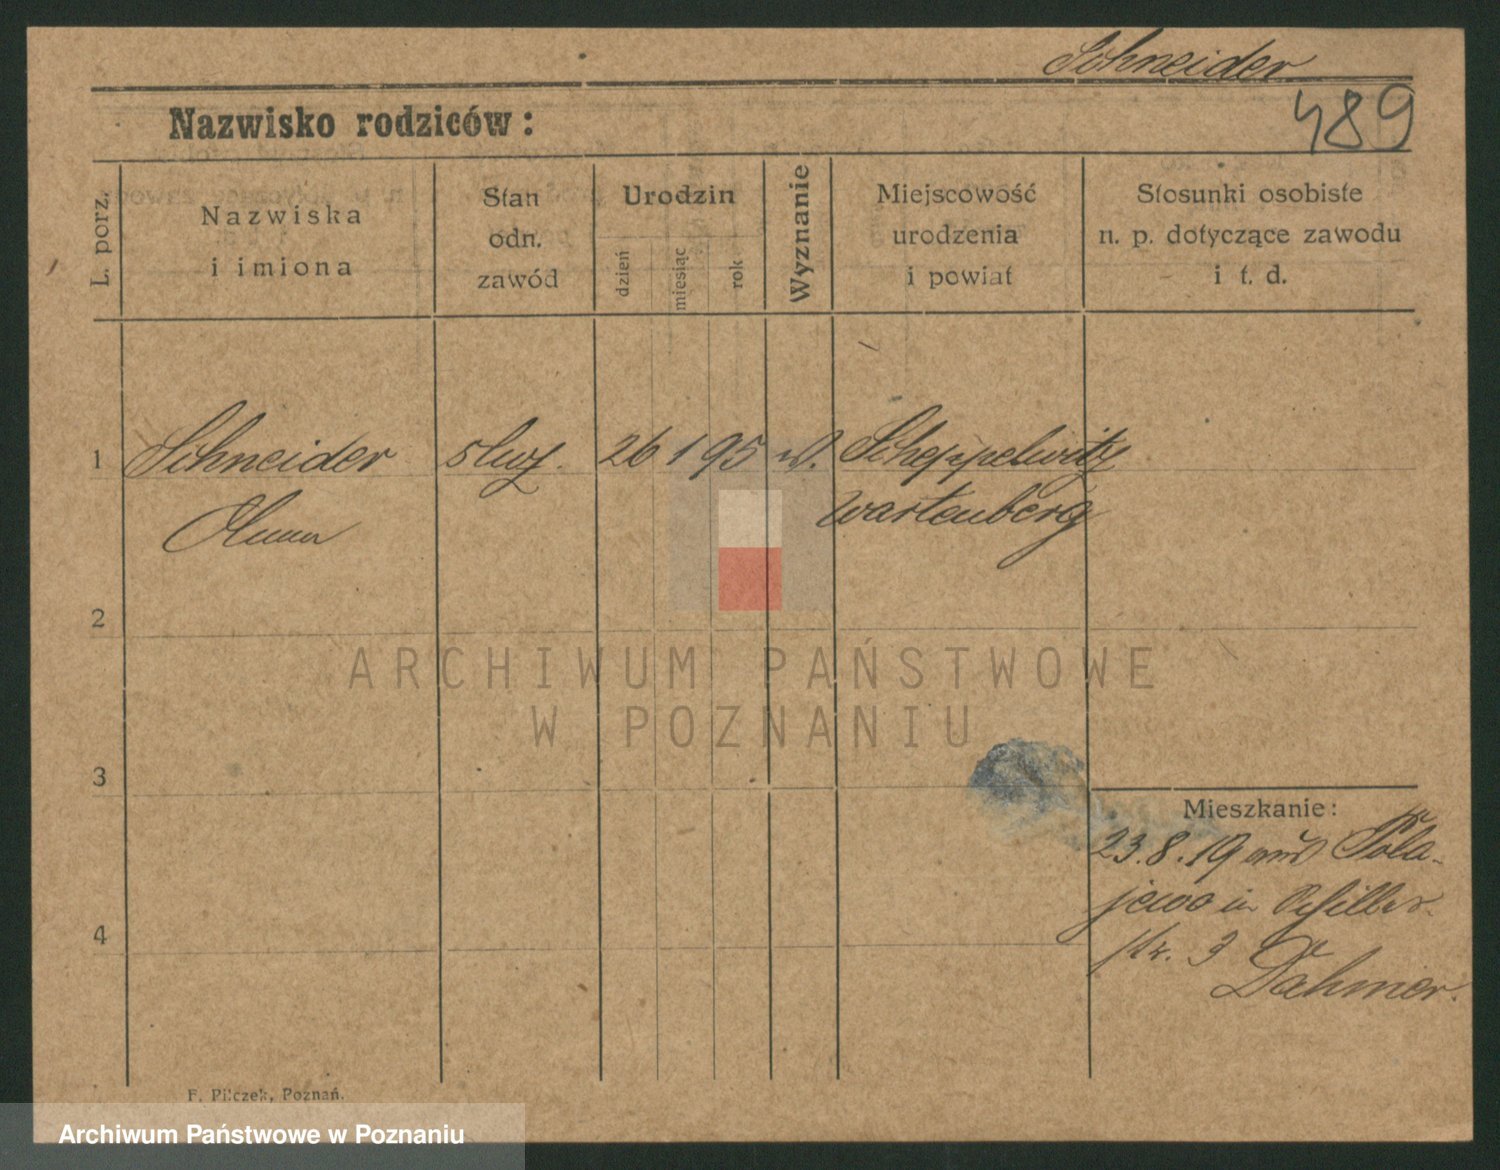 Schneider
489
Nazwisko rodziców:
L. porz.
Nazwiska
i imiona
Stan
odn.
zawód
Urodzin
dzień
miesiąc
rok
Wyznanie
Miejscowość
urodzenia
i powiat
Stosunki osobiste
n. p. dotyczące zawodu
i t. d.
1 Schneider służ. 26 1 95 Scheppelwitz
Wartenberg
2
ARCHIWUM PAŃSTWOWE
W POZNANIU
3
Mieszkanie:
23.8.19 Pola-
jewo in Schiller-
4
str. 3
Dahmer.
F. Pilczek, Poznań.
Archiwum Państwowe w Poznaniu